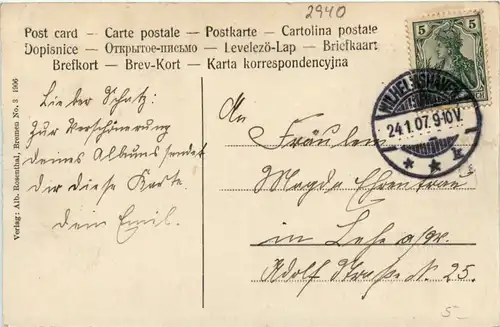 2940
Post card – Carte postale – Postkarte – Cartolina postale
Dopisnice – Открытое-письмо – Levelező-Lap – Briefkaart
Brefkort – Brev-Kort – Karta korrespondencyjna
5 5
WILHELMSHAVEN
24.1.07.9-10V.
* * k
Verlag: Alb. Rosenthal, Bremen No. 3 1906
Lieber Schatz:
Zur Verschönerung
deines Albums sendet
dir diese Karte
dein Emil.
An
Fräulein
Magda Ehrentrau
in Lehe a/gr.
Adolf Straße N. 25.
5-